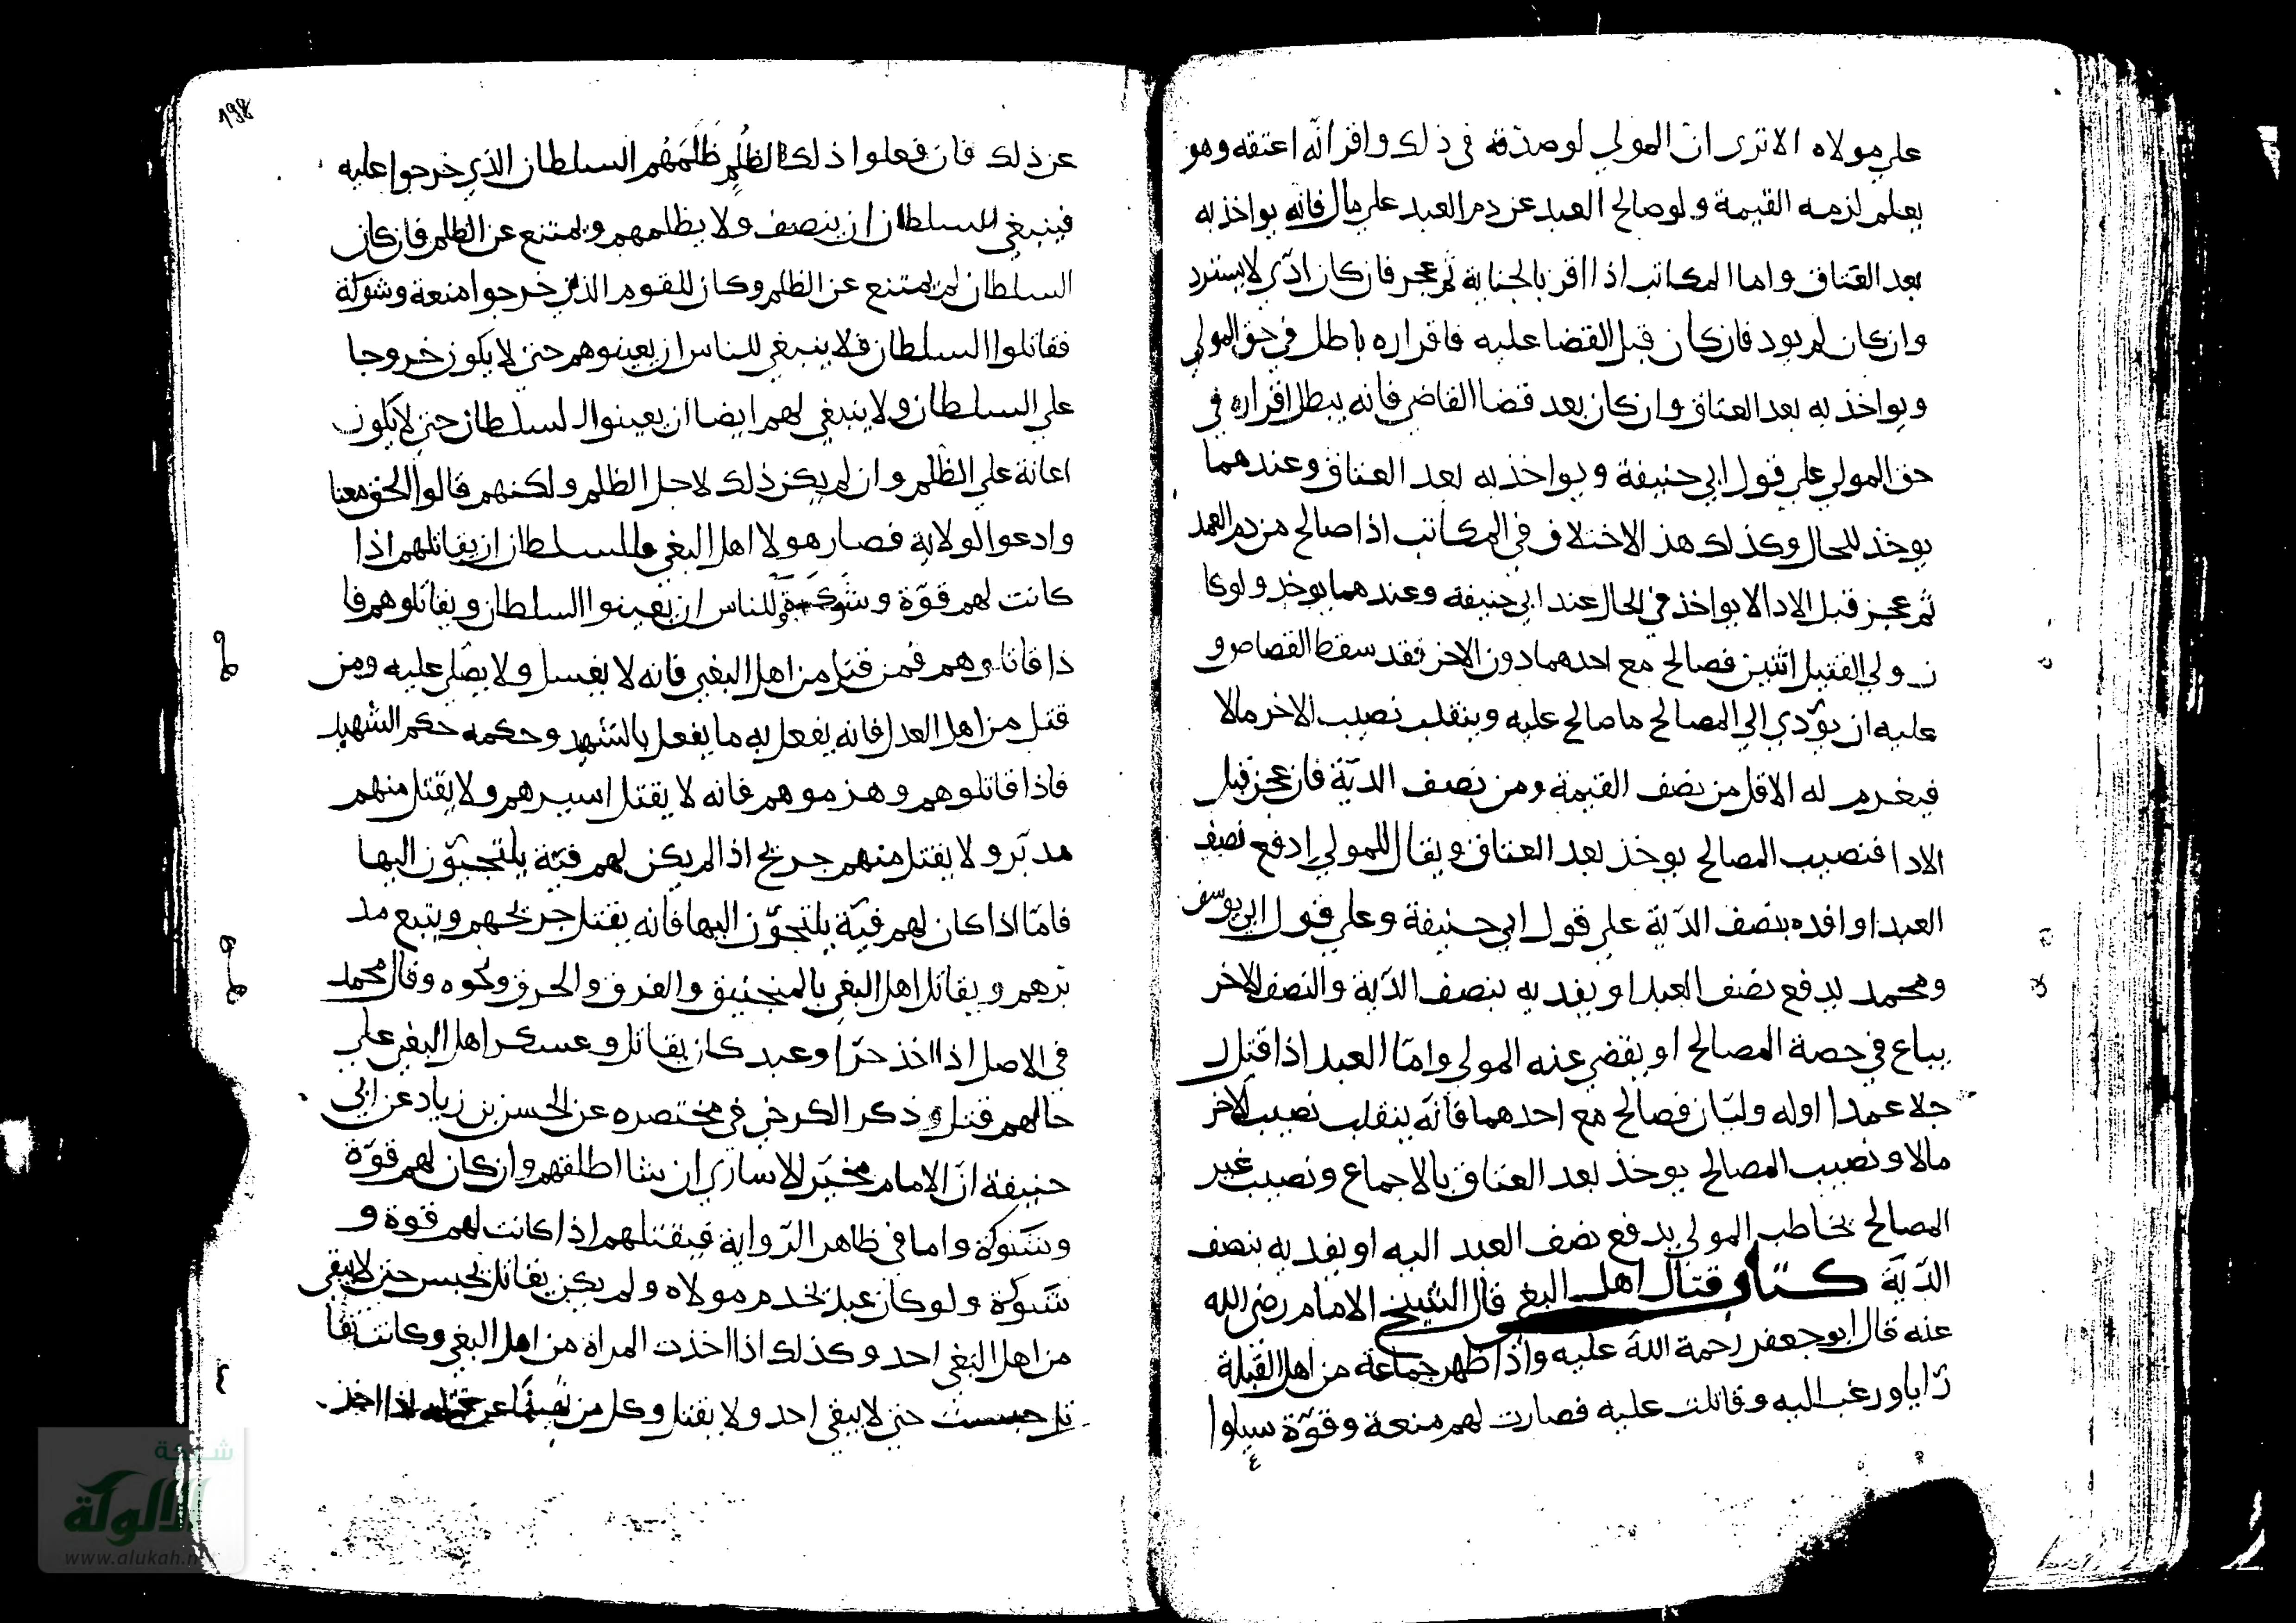 علي مولاه الا تري ان المولي لو صدقه في ذلك واقر انه اعتقه وهو
يعلم لزمه القيمة ولو صالح العبد عن دم العبد علي مال فانه يواخذ به
بعد العتاق واما المكاتب اذا اقر بالجناية ثم عجز فان كان ادّي لا يسترد
وان كان لم يود فان كان قبل القضا عليه فاقراره باطل في حق المولي
ويواخذ به بعد العتاق وان كان بعد قضا القاضي فانه يبطل اقراره في
حق المولي علي قول ابي حنيفة ويواخذ به بعد العتاق وعندهما
يوخذ للحال وكذلك هذ الاختلاف في المكاتب اذا صالح من دم العمد
ثم عجز قبل الادا لا يواخذ في الحال عند ابي حنيفة وعندهما يوخذ ولو كا
ن ولي القتيل اثنين فصالح مع احدهما دون الاخر فقد سقط القصاص و
عليه ان يؤدي الي المصالح ما صالح عليه وينقلب نصيب الاخر مالا
فيغرم له الاقل من نصف القيمة ومن نصف الديّة فان عجز قبل
الادا فنصيب المصالح يوخذ بعد العتاق ويقال للمولي ادفع نصف
العبد او افده بنصف الدّية علي قول ابي حنيفة وعلي قول ابي يوسف
ومحمد يدفع نصف العبد او يفديه بنصف الدّية والنصف الاخر
يباع في حصة المصالح او يقضي عنه المولي وامّا العبد اذا قتل ر
جلا عمدا اوله وليّان فصالح مع احدهما فانّه ينقلب نصيب الاخر
مالا ونصيب المصالح يوخذ بعد العتاق بالاجماع ونصيب غير
المصالح يخاطب المولي بدفع نصف العبد اليه او يفديه بنصف
الدّية كتاب قتال اهل البغي قال الشيخ الامام رضي الله
عنه قال ابو جعفر رحمة الله عليه واذا ظهر جماعة من اهل القبلة
رّايا ورغب اليه وقاتلت عليه فصارت لهم منعة وقوّة سيلوا
١٩٨
عن ذلك فان فعلوا ذلك لظلم ظلمهم السلطان الذي خرجوا عليه
فينبغي للسلطان ان ينصف ولا يظلمهم ويمتنع عن الظلم فان كان
السلطان لم يمتنع عن الظلم وكان للقوم الذين خرجوا منعة وشوكة
فقاتلوا السلطان فلا ينبغي للناس ان يعينوهم حتي لا يكون خروجا
علي السلطان ولا ينبغي لهم ايضا ان يعينوا السلطان حتي لا يكون
اعانة علي الظلم وان لم يكن ذلك لاجل الظلم ولكنهم قالوا الحق معنا
وادعوا الولاية فصار هولا اهل البغي وللسلطان ان يقاتلهم اذا
كانت لهم قوّة وشوكة وللناس ان يعينوا السلطان ويقاتلوهم فا
ذا قاتلوهم فمن قتل من اهل البغي فانه لا يغسل ولا يصلي عليه ومن
قتل من اهل العدل فانه يفعل به ما يفعل بالشهيد وحكمه حكم الشهيد
فاذا قاتلوهم وهزموهم فانه لا يقتل اسيرهم ولا يقتل منهم
مدبّر ولا يقتل منهم جريح اذا لم يكن لهم فيّة يلتجيون اليها
فامّا اذا كان لهم فيّة يلتجوّن اليها فانه يقتل جريحهم ويتبع مد
برهم ويقاتل اهل البغي بالمنجنيق والغرق والحرق ونحوه وقال محمد
في الاصل اذا اخذ حرّ او عبد كان يقاتل وعسكر اهل البغي علي
حالهم قتل وذكر الكرخي في مختصره عن الحسن بن زياد عن ابي
حنيفة انّ الامام مخيّر للاساري ان شا اطلقهم وان كان لهم قوّة
وشوكة واما في ظاهر الرّواية فيقتلهم اذا كانت لهم قوة و
شوكة ولو كان عبد يخدم مولاه ولم يكن يقاتل يحبس حتي لا يبقي
من اهل البغي احد وكذلك اذا اخذت المراة من اهل البغي وكانت تقا
تل حبست حتي لا يبقي احد ولا يقتل وكل من اذا اخذ
شبكة
الألوكة
www.alukah.n